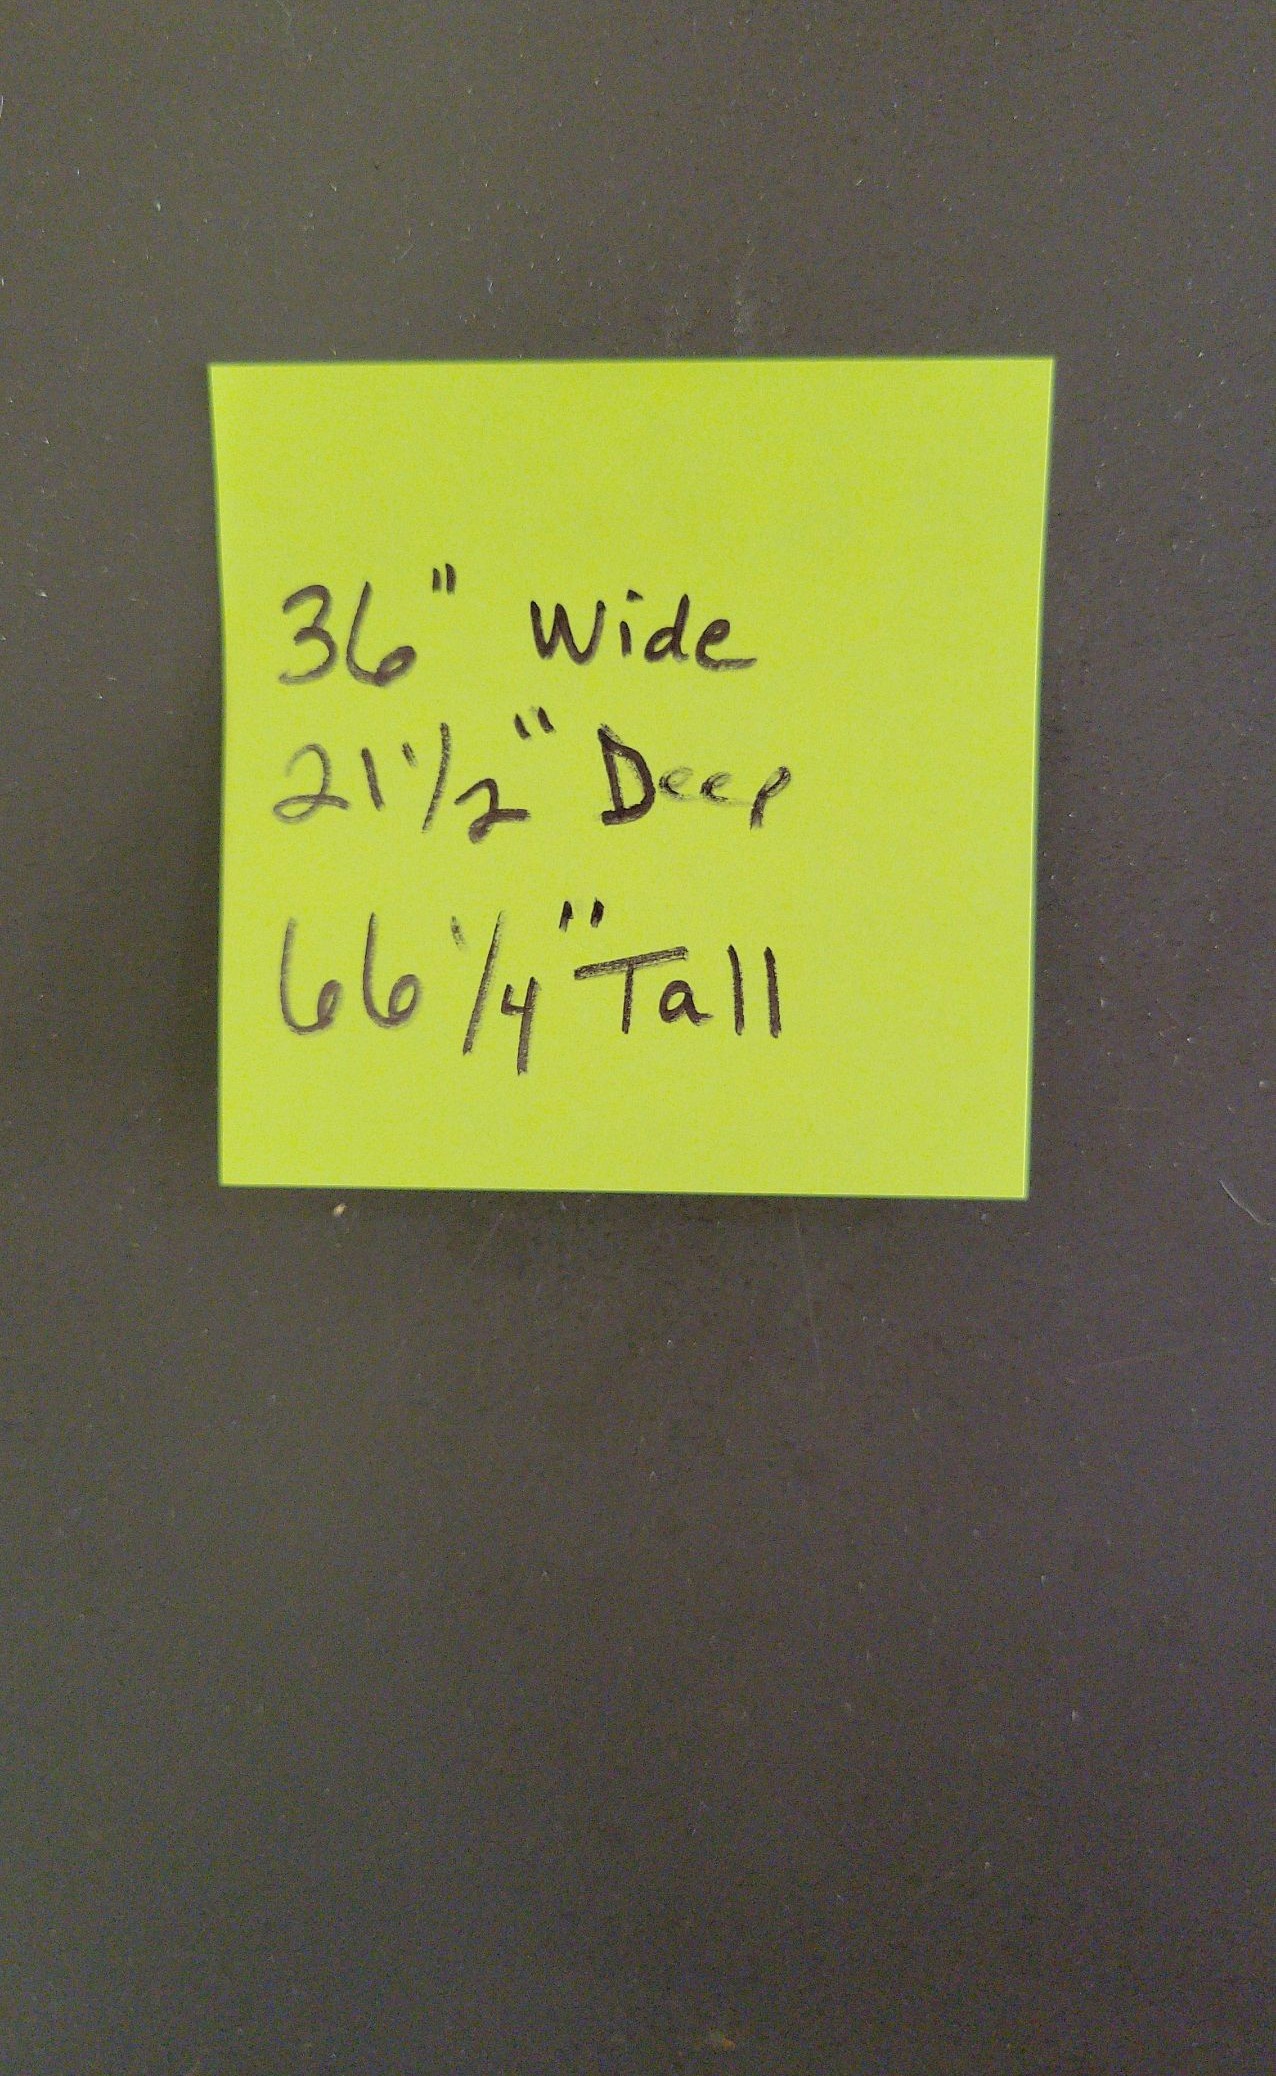 36" Wide
21 1/2" Deep
66 1/4" Tall